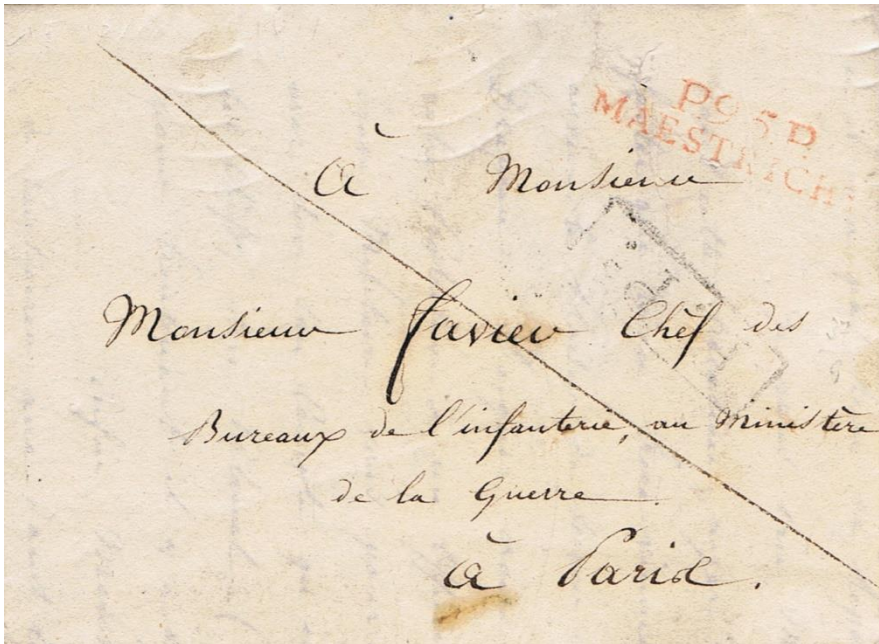 P.95.P.
MAESTRICH
à Monsieur
Monsieur favier Chèf des
Bureaux de l'infanterie, au Ministère
de la Guerre
à Paris.